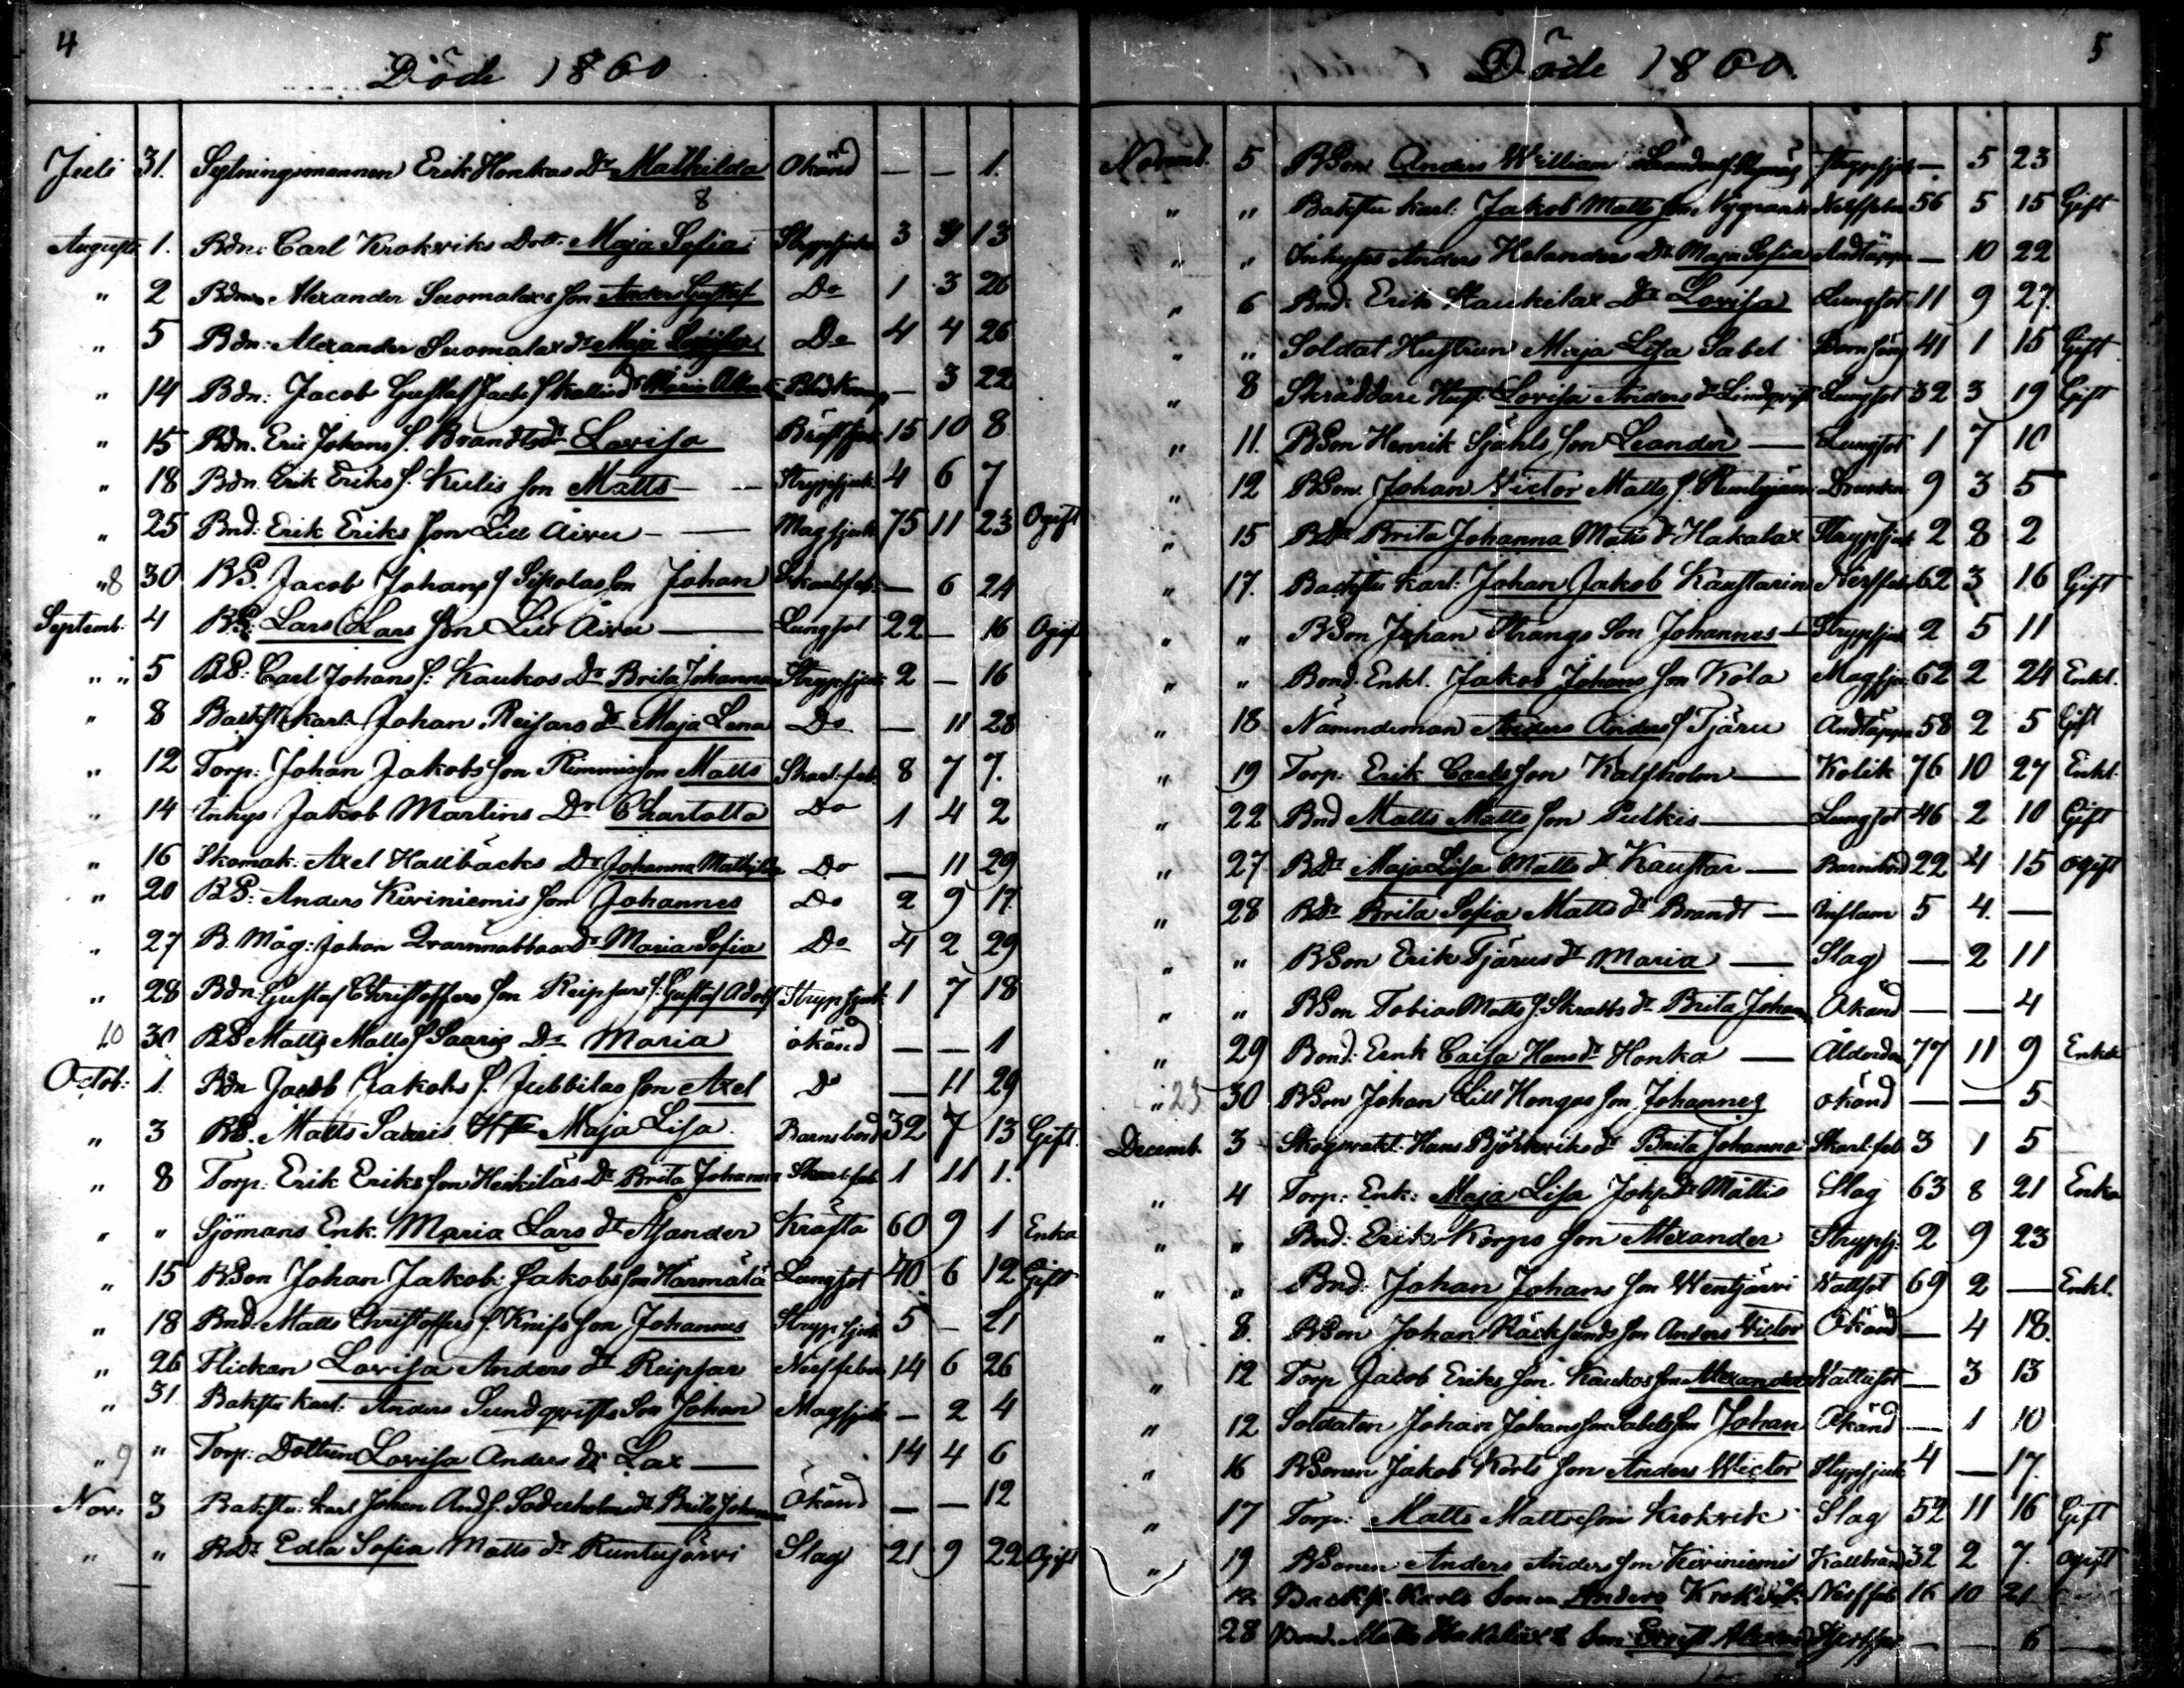 4
Döde 1860
Juli 31. Sytningsmannen Erik Honkas Dr Mathilda Okänd — — 1.
8
Augusti 1. Bdn: Carl Krokviks Dott. Maja Sofia Strypsjuka 3 13
" 2 Bdn Alexander Suomalax son Anders Gustaf Do 1 3 26
" 5 Bdn: Alexander Suomalax dr Maja Do 4 4 26
" 14 Bdn: Jacob Gustaf Jacobs Kallis dr Maria — 3 22
" 15 Bdn. Eric Johans s. Brandts dr Lovisa Bröstsjuk 15 10 8
" 18 Bdn. Erik Eriks s. Kulis son Matts — Strypsjuk. 4 6 7
" 25 Bnd: Erik Eriks son Lill Aivu — Magsjuk 75 11 23 Ogift
" 8 30 BS. Jacob Johans s Sipolas son Johan Skarlfeb. — 6 24
Septemb. 4 BS: Lars Lars son Lill Aivu — Lungsot 22 — 16 Ogift
" " 5 BS: Carl Johans s: Kaukos Dr Brita Johanna Strypsjuk 2 — 16
" 8 Backstu karl. Johan Reisars dr Maja Lena Do — 11 28
" 12 Torp: Johan Jakobs son Rimmis son Matts Skarl:feb. 8 7 7.
" 14 Inhys Jakob Martins Dr Charlotta Do 1 4 2
" 16 Skomak: Axel Hallbäcks Dr Johanna Mathilda Do — 11 29
" 20 BS: Anders Kiviniemis son Johannes Do 2 9 17.
" 27 B. Måg: Johan Qvarnnabbas Dr Maria Sofia Do 4 2 29
" 28 Bdn Gustaf Christoffers son Reipsars s: Gustaf Adolf Strypsjuk 1 7 18
10 30 BS Matts Matts s Saaris Dr Maria okänd — — 1
Octob: 1. Bdn Jacob Jakobs s. Jubbilas son Axel Do — 11 29
" 3 BS. Matts Saaris Maja Lisa. Barnsbörd 32 7 13 Gift.
" 8 Torp: Erik Eriks son Heikilas Dr Brita Johanna Skarl:feb 1 11 1.
" " Sjömans Enk. Maria Lars dr Asander Kräfta 60 9 1 Enka
" 15 BSon Johan Jakob: Jakobs son Hanmala Lungsot 40 6 12 Gift
" 18 Bnd. Matts Christoffers s. Knifs son Johannes Strypsjuk 5 — 21
" 26 Flickan Lovisa Anders dr Reipsar Nerffeber 14 6 26
" 31 Bakstu karl. Anders Sundqvists Son Johan Magsjuk — 2 4
" 9 " Torp: Dottren Lovisa Anders dr Lax — 14 4 6
Nov: 3 Bakstu: karl Johan And s. Söderholms dr Brita Johanna Okänd — — 12
" " BDr Edla Sofia Matts dr Runtujärvi Slag 21 9 22 Ogift
5
Döde 1860.
Novemb. 5 BSon Anders William Strypsjuk — 5 23
" " Bakstu karl: Jakob Matts son Nygrand Nerffeber 56 5 15 Gift
" " Inhyses Anders Helanders Dr Maja Sofia Andtäppa — 10 22
" 6 Bnd: Erik Haukilax Dr Lovisa Lungsot 11 9 27.
" " Soldat Hustrun Maja Lisa Sabel Barnsäng 41 1 15 Gift
" 8 Skräddare Hust. Lovisa Anders dr Lindqvist Lungsot 32 3 19 Gift
" 11. BSon Henrik Sjöhls son Leander — Lungsot 1 7 10
" 12 BSon. Johan Victor Matts s. Runtujärvi Drunkn 9 3 5
" 15 BDr Brita Johanna Matts dr Hakalax Strypsjuk 2 8 2
" 17. Backstu karl: Johan Jakob Kaustarin Nerffeb. 62 3 16 Gift
" " BSon Johan Strangs Son Johannes — Strypsjuk 2 5 11
" " Bond. Enkl. Jakob Johans son Kola Magsju. 62 2 24 Enkl.
" 18 Nämndeman Anders Anders s Tjäru Andtäppa 58 2 5 Gift
" 19 Torp: Erik Carls son Kalfholm — Kolik 76 10 27 Enkl.
" 22 Bnd Matts Matts son Pulkis — Lungsot 46 2 10 Gift
" 27 BDr Maja Lisa Matts dr Kaustar — Barnsbörd 22 4 15 ogift
" 28 BDr Brita Sofia Matts dr Brandt — Inflam 5 4. —
" " BSon Erik Tjärus dr Maria — Slag — 2 11
" " BSon Tobias Matts s. Skrabbs dr Brita Johan Okänd — — 4
" 29 Bond: Enk Caisa Hans dr Honka — Ålderdom 77 11 9 Enka
" 23 30 BSon Johan Lill Hongas son Johannes okänd — — 5
Decemb. 3 Skogvakt. Hans Björkviks dr Brita Johanna Skarl-feb 3 1 5
" 4 Torp: Enk: Maja Lisa Johs Dr Mattis Slag 63 8 21 Enka
" " Bnd: Erik Korpis son Alexander Strypsj. 2 9 23
" " Bnd: Johan Johans son Wentjärvi Vattsot 69 2 — Enkl.
" 8. BSon Johan Räcksunds son Anders Victor Okänd — 4 18.
" 12 Torp Jacob Eriks son Kaukos son Alexander Vattusot — 3 13
" 12 Soldaten Johan Johans son Sabels son Johan Okänd — 1 10
" 16 BSonen Jakob Korts son Anders Wictor Strypsjuk 4 — 17.
" 17 Torp: Matts Mattsson Krokvik Slag 52 11 16 Gift
" 19 BSonen Anders Anders son Kiviniemi Kallbrand 32 2 7. ogift
Backst. Karls Sonen Anders Krokvik Nerffeb 16 10 21
28 Bond. Matts Hakalax Son — — 6 —